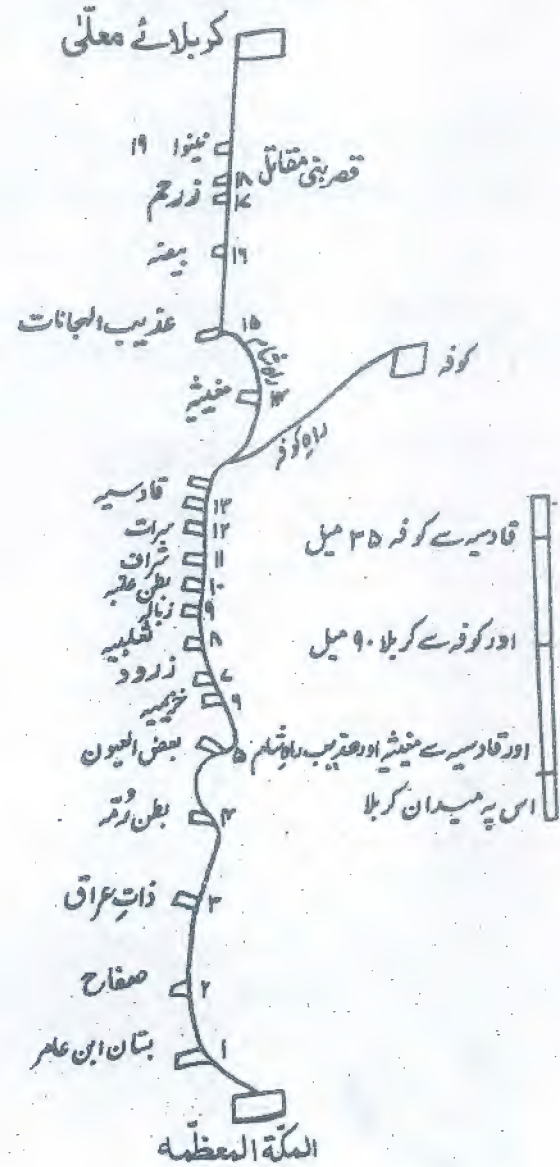 کربلائے معلّیٰ
نینوا ۱۹
قصر بنی مقاتل ۱۸
زرحم ۱۷
بیضہ ۱۶
عذیب الہجانات ۱۵
راہ شام
مغیثہ ۱۴
کوفہ
راہ کوفہ
قادسیہ ۱۳
برات ۱۲
شراف ۱۱
بطن عقبہ ۱۰
زبالہ ۹
ثعلبیہ ۸
زرود ۷
خزیمیہ ۶
بعض العیون ۵
بطن رُمّہ ۴
ذاتِ عراق ۳
صفاح ۲
بستان ابن عامر ۱
المکّة المعظّمہ
قادسیہ سے کوفہ ۳۵ میل
اور کوفہ سے کربلا ۹۰ میل
اور قادسیہ سے مغیثہ اور عذیب راہِ شام
اس پہ میدان کربلا